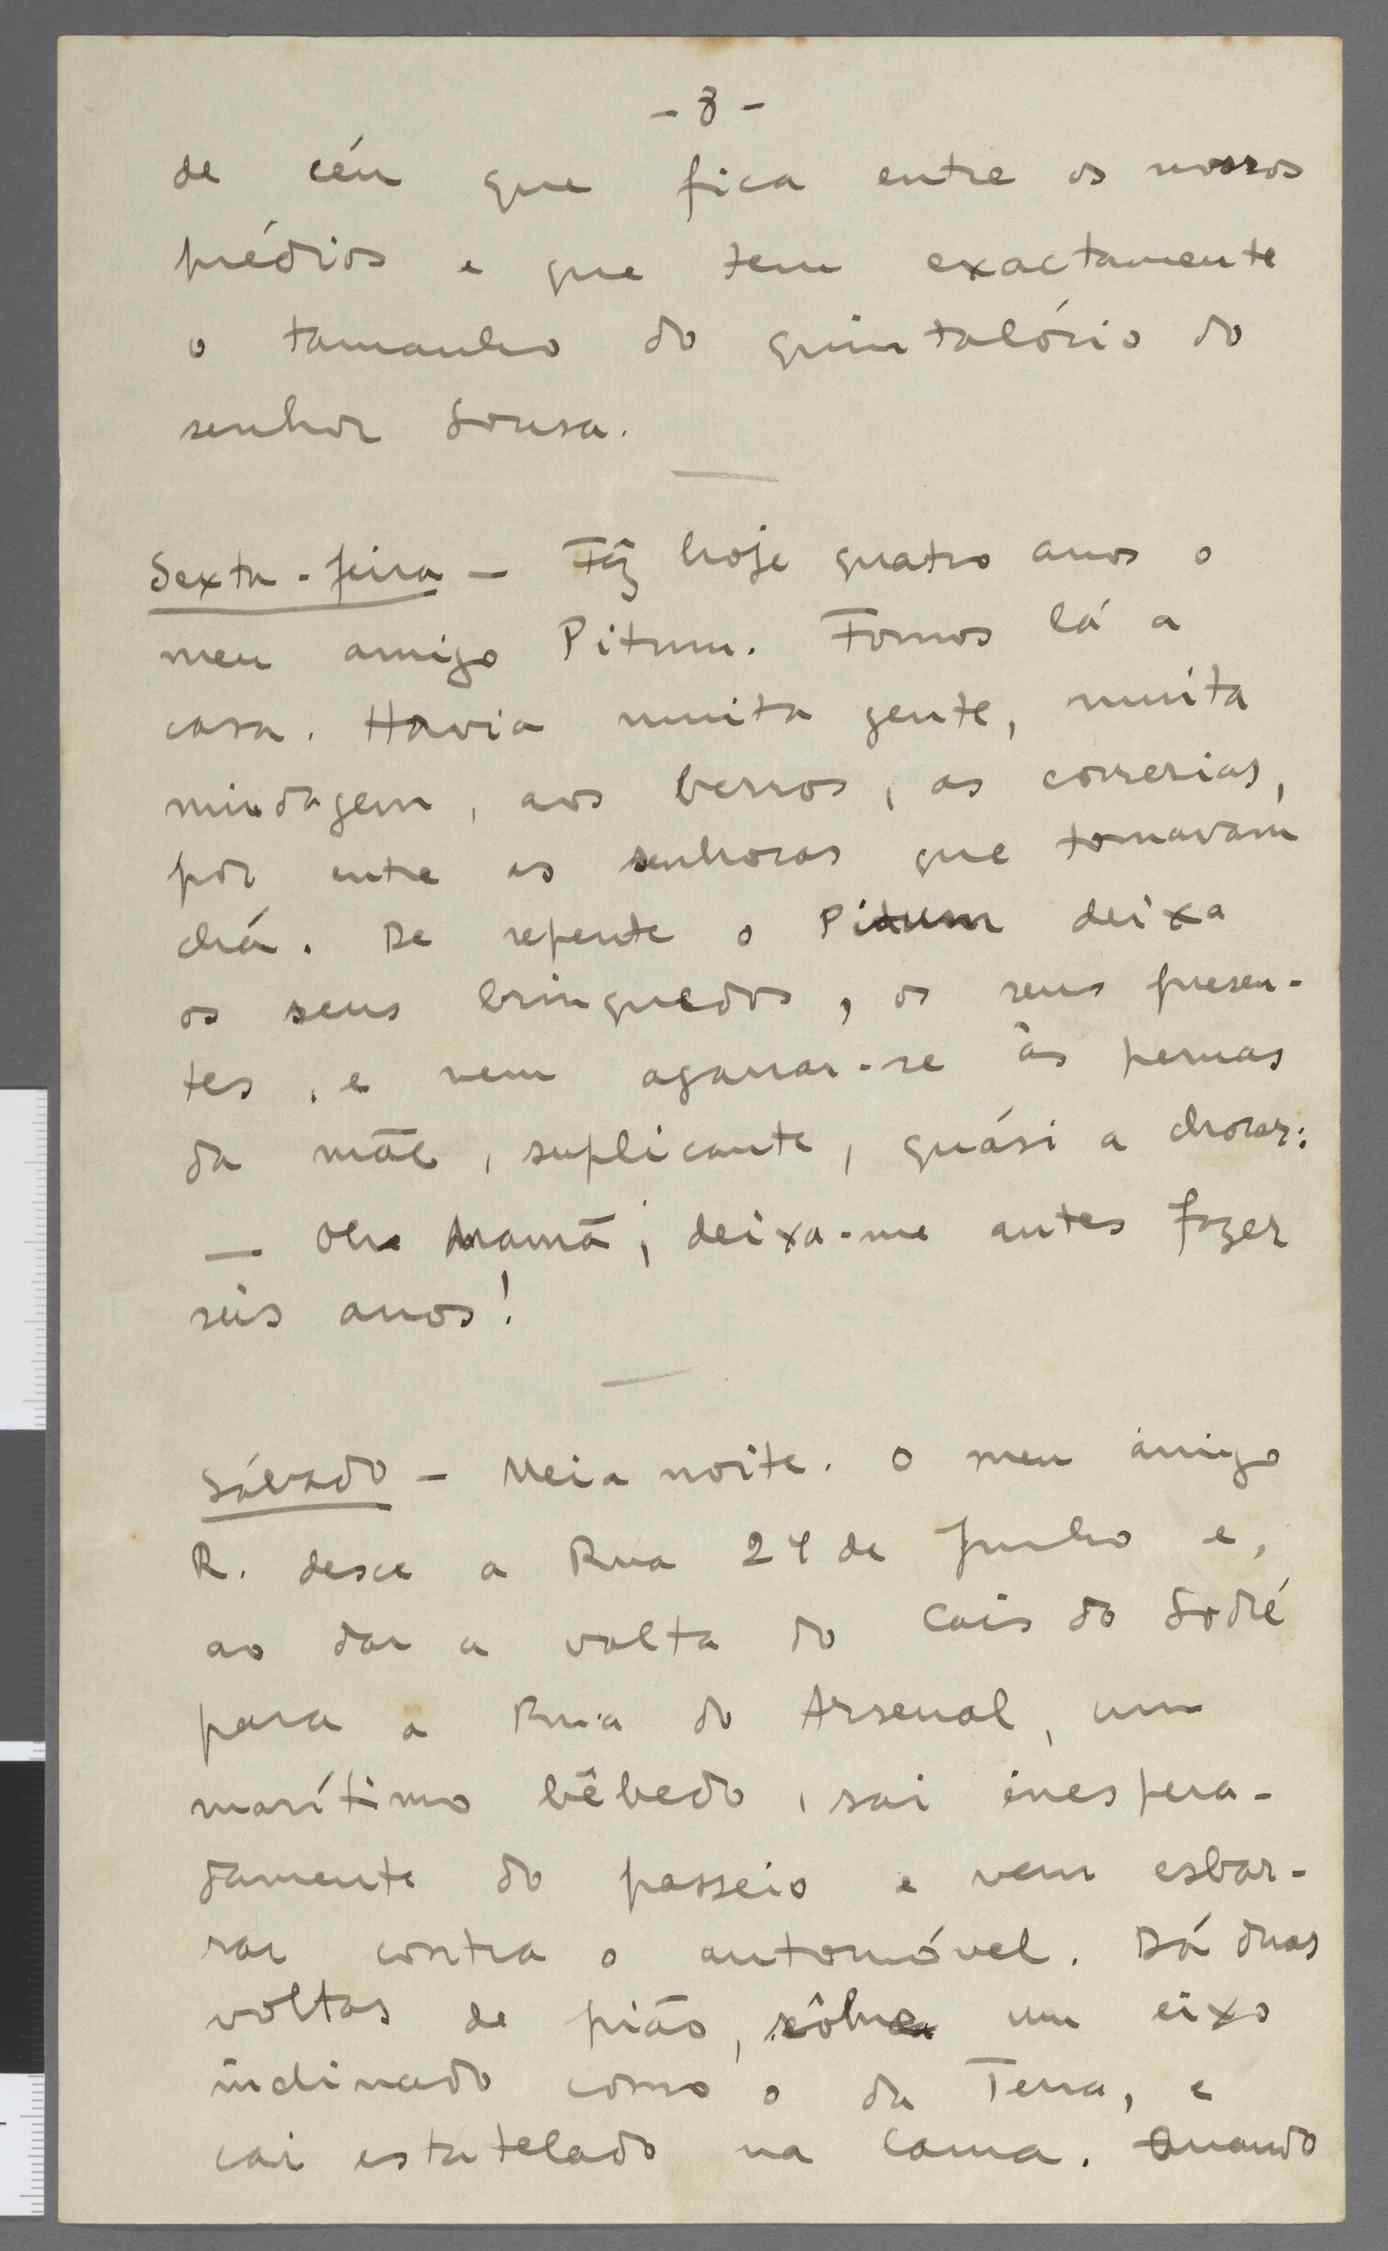 - 8 -
de céu que fica entre os nossos
prédios e que tem exactamente
o tamanho do quintalório do
senhor Sousa.
Sexta-feira - Fêz hoje quatro anos o
meu amigo Pitum. Fomos lá a
casa. Havia muita gente, muita
miudagem, aos berros, às correrias,
por entre as senhoras que tomavam
chá. De repente o Pitum deixa
os seus brinquedos, os seus presen-
tes, e vem agarrar-se às pernas
da mãe, suplicante, quási a chorar:
— Oh Mamã, deixa-me antes fazer
seis anos!
Sábado - Meia noite. O meu amigo
R. desce a Rua 24 de Julho e,
ao dar a volta do Cais do Sodré
para a Rua do Arsenal, um
marítimo bêbedo, sai inespera-
damente do passeio e vem esbar-
rar contra o automóvel. Dá duas
voltas de pião, sôbre um eixo
inclinado como o da Terra, e
cai estatelado na lama. Quando